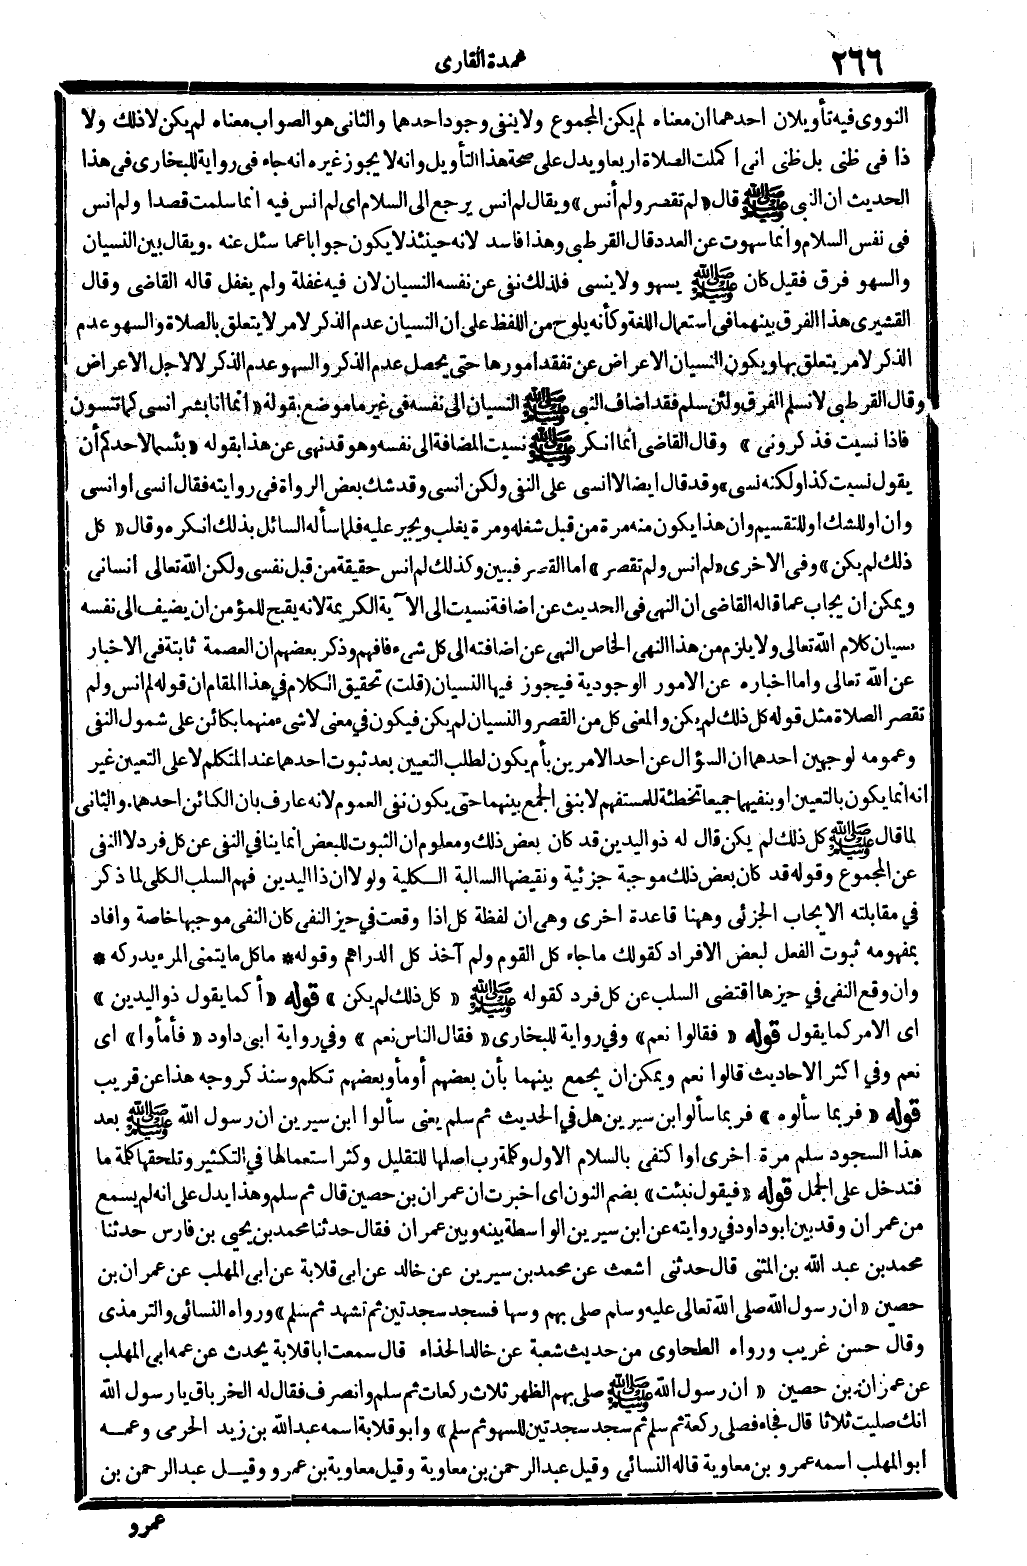 ٢٦٦
عمدة القارى
النووى فيه تأويلان احدهما ان معناه لم يكن المجموع ولا ينفى وجود احدهما والثانى هو الصواب معناه لم يكن لا ذلك ولا
ذا فى ظنى بل ظنى انى اكملت الصلاة اربعا ويدل على صحة هذا التأويل وانه لا يجوز غيره انه جاء فى رواية للبخارى فى هذا
الحديث ان النبى ﷺ قال « لم تقصر ولم أنس » ويقال لم انس يرجع الى السلام اى لم انس فيه انما سلمت قصدا ولم انس
فى نفس السلام وانما سهوت عن العدد قال القرطبى وهذا فاسد لانه حينئذ لا يكون جوابا عما سئل عنه . ويقال بين النسيان
والسهو فرق فقيل كان ﷺ يسهو ولا ينسى فلذلك نفى عن نفسه النسيان لان فيه غفلة ولم يغفل قاله القاضى وقال
القشيرى هذا الفرق بينهما فى استعمال اللغة وكأنه يلوح من اللفظ على ان النسيان عدم الذكر لامر لا يتعلق بالصلاة والسهو عدم
الذكر لامر يتعلق بها ويكون النسيان الاعراض عن تفقد امورها حتى يحصل عدم الذكر والسهو عدم الذكر لا لاجل الاعراض
وقال القرطبى لا نسلم الفرق ولئن سلم فقد اضاف النبى ﷺ النسيان الى نفسه فى غير ما موضع بقوله « انما انا بشر انسى كما تنسون
فاذا نسيت فذكرونى » وقال القاضى انما انكر ﷺ نسيت المضافة الى نفسه وهو قد نهى عن هذا بقوله « بئسما لاحدكم أن
يقول نسيت كذا ولكنه نسى » وقد قال ايضا لا انسى على النفى ولكن انسى وقد شك بعض الرواة فى روايته فقال انسى او انسى
وان او للشك او للتقسيم وان هذا يكون منه مرة من قبل شغله ومرة يغلب ويجبر عليه فلما سأله السائل بذلك انكره وقال « كل
ذلك لم يكن » وفى الاخرى « لم انس ولم تقصر » اما القصر فبين وكذلك لم انس حقيقة من قبل نفسى ولكن الله تعالى انسانى
ويمكن ان يجاب عما قاله القاضى ان النهى فى الحديث عن اضافة نسيت الى الآية الكريمة لانه يقبح للمؤمن ان يضيف الى نفسه
نسيان كلام الله تعالى ولا يلزم من هذا النهى الخاص النهى عن اضافته الى كل شىء فافهم وذكر بعضهم ان العصمة ثابتة فى الاخبار
عن الله تعالى واما اخباره عن الامور الوجودية فيجوز فيها النسيان (قلت) تحقيق الكلام فى هذا المقام ان قوله لم انس ولم
تقصر الصلاة مثل قوله كل ذلك لم يكن والمعنى كل من القصر والنسيان لم يكن فيكون فى معنى لا شىء منهما بكائن على شمول النفى
وعمومه لوجهين احدهما ان السؤال عن احد الامرين بأم يكون لطلب التعيين بعد ثبوت احدهما عند المتكلم لا على التعيين غير
انه انما يكون بالتعيين او بنفيهما جميعا تخطئة للمستفهم لا بنفى الجمع بينهما حتى يكون نفى العموم لانه عارف بان الكائن احدهما . والثانى
لما قال ﷺ كل ذلك لم يكن قال له ذو اليدين قد كان بعض ذلك ومعلوم ان الثبوت للبعض انما ينافى النفى عن كل فرد لا النفى
عن المجموع وقوله قد كان بعض ذلك موجبة جزئية ونقيضها السالبة الكلية ولولا ان ذا اليدين فهم السلب الكلى لما ذكر
فى مقابلته الايجاب الجزئى وههنا قاعدة اخرى وهى ان لفظة كل اذا وقعت فى حيز النفى كان النفى موجبها خاصة وافاد
بمفهومه ثبوت الفعل لبعض الافراد كقولك ما جاء كل القوم ولم آخذ كل الدراهم وقوله * ما كل ما يتمنى المرء يدركه *
وان وقع النفى فى حيزها اقتضى السلب عن كل فرد كقوله ﷺ « كل ذلك لم يكن » قوله « أكما يقول ذو اليدين »
اى الامر كما يقول قوله « فقالوا نعم » وفى رواية للبخارى « فقال الناس نعم » وفى رواية ابى داود « فأمأوا » اى
نعم وفى اكثر الاحاديث قالوا نعم ويمكن ان يجمع بينهما بأن بعضهم أومأ وبعضهم تكلم وسنذكر وجه هذا عن قريب
قوله « فربما سألوه » فربما سألوا ابن سيرين هل فى الحديث ثم سلم يعنى سألوا ابن سيرين ان رسول الله ﷺ بعد
هذا السجود سلم مرة اخرى او اكتفى بالسلام الاول وكلمة رب اصلها للتقليل وكثر استعمالها فى التكثير وتلحقها كلمة ما
فتدخل على الجمل قوله « فيقول نبئت » بضم النون اى اخبرت ان عمران بن حصين قال ثم سلم وهذا يدل على انه لم يسمع
من عمران وقد بين ابو داود فى روايته عن ابن سيرين الواسطة بينه وبين عمران فقال حدثنا محمد بن يحيى بن فارس حدثنا
محمد بن عبد الله بن المثنى قال حدثنى اشعث عن محمد بن سيرين عن خالد عن ابى قلابة عن ابى المهلب عن عمران بن
حصين « ان رسول الله صلى الله تعالى عليه وسلم صلى بهم وسها فسجد سجدتين ثم تشهد ثم سلم » ورواه النسائى والترمذى
وقال حسن غريب ورواه الطحاوى من حديث شعبة عن خالد الحذاء قال سمعت ابا قلابة يحدث عن عمه ابى المهلب
عن عمران بن حصين « ان رسول الله ﷺ صلى بهم الظهر ثلاث ركعات ثم سلم وانصرف فقال له الخرباق يا رسول الله
انك صليت ثلاثا قال فجاء فصلى ركعة ثم سلم ثم سجد سجدتين للسهو ثم سلم » وابو قلابة اسمه عبد الله بن زيد الجرمى وعمه
ابو المهلب اسمه عمرو بن معاوية قاله النسائى وقيل عبد الرحمن بن معاوية وقيل معاوية بن عمرو وقيل عبد الرحمن بن
عمرو